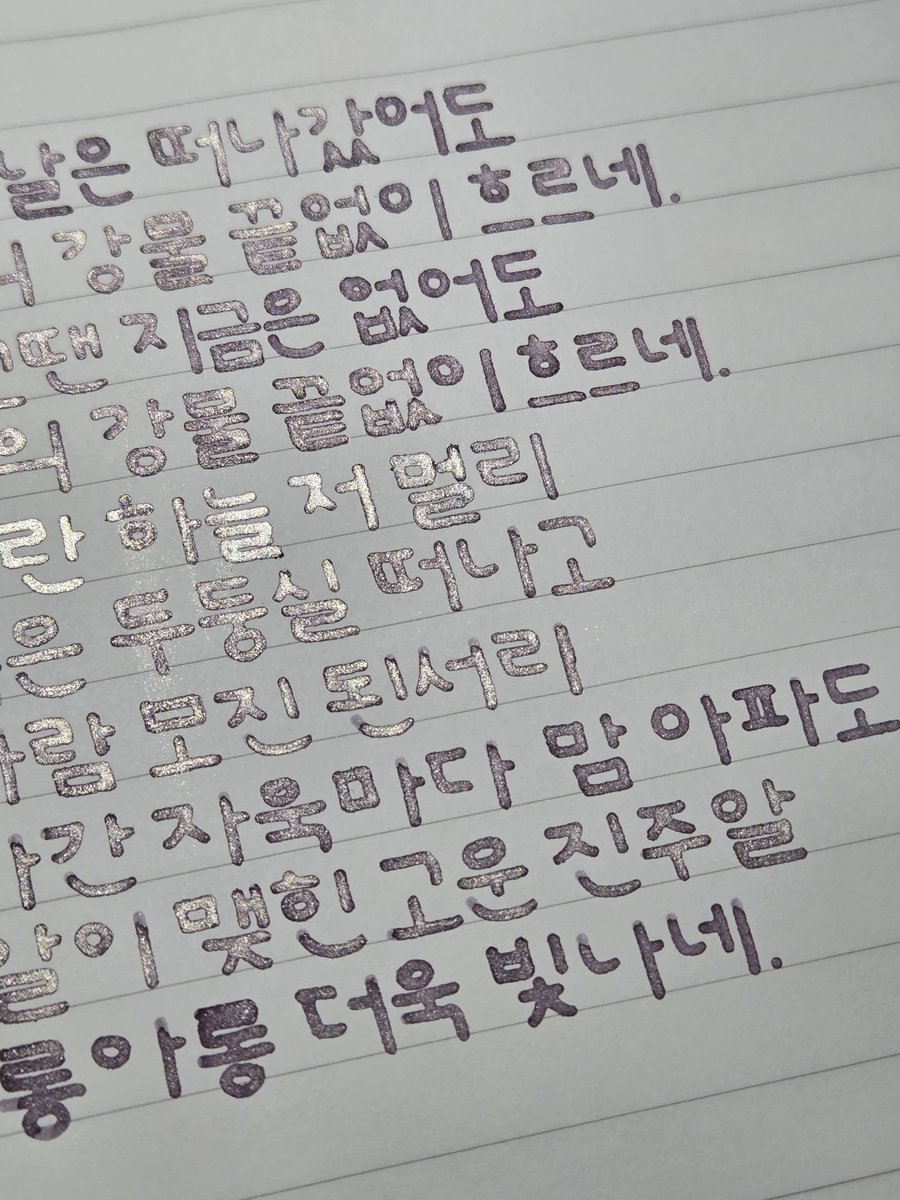 날은 떠나갔어도
강물 끝없이 흐르네.
지금은 없어도
강물 끝없이 흐르네.
하늘 저 멀리
두둥실 떠나고
모진 된서리
자욱마다 맘 아파도
알알이 맺힌 고운 진주알
롱아롱 더욱 빛나네.